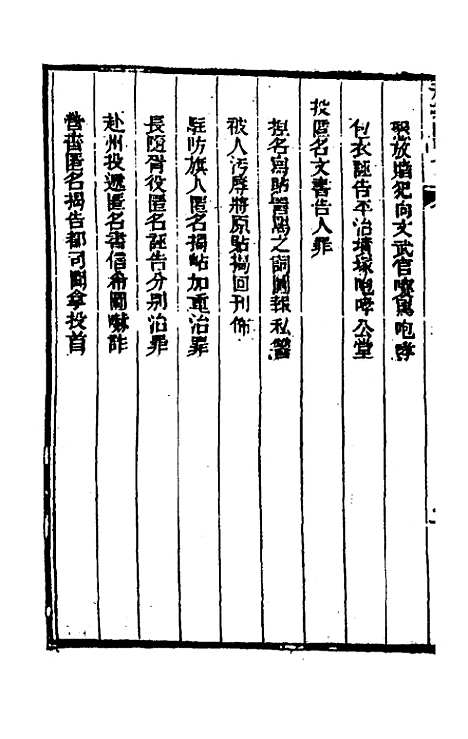 釋放婚犯向文武官嚷罵咆哮
包衣誣告平治墳塚咆哮公堂
投匿名文書告人罪
捏名寫貼詈罵之詞圖報私讐
被人污辱將原貼揭回刊佈
駐防旗人匿名揭帖加重治罪
長隨胥役匿名誣告分别治罪
赴州投遞匿名書信希圖嚇詐
營書匿名揭告都司聞拿投首